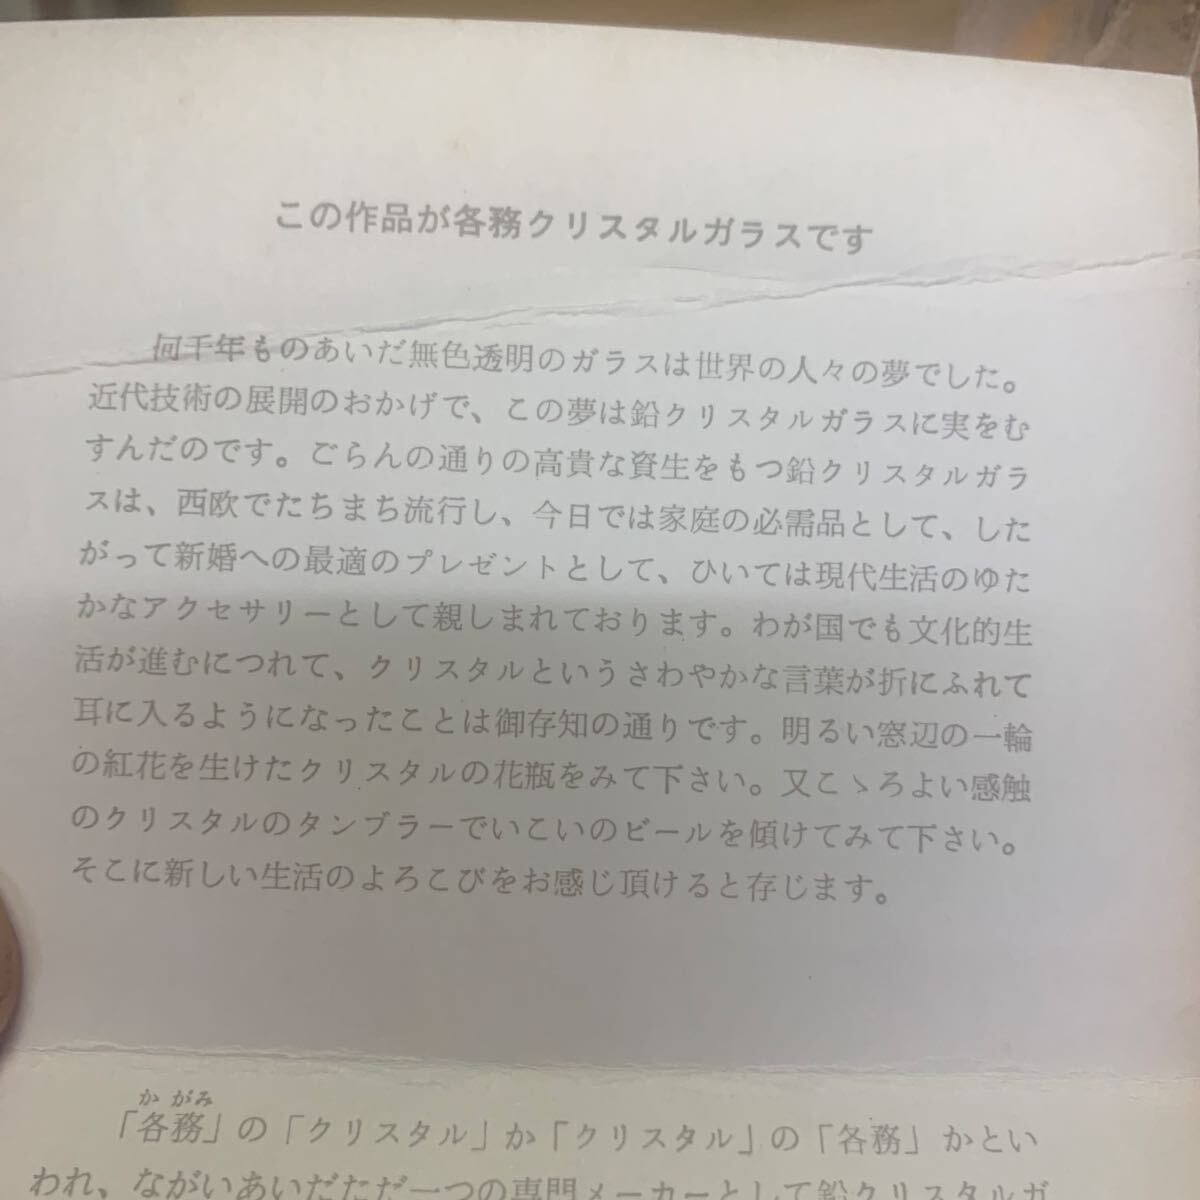 この作品が各務クリスタルガラスです
何千年ものあいだ無色透明のガラスは世界の人々の夢でした。
近代技術の展開のおかげで、この夢は鉛クリスタルガラスに実をむ
すんだのです。ごらんの通りの高貴な資生をもつ鉛クリスタルガラ
スは、西欧でたちまち流行し、今日では家庭の必需品として、した
がって新婚への最適のプレゼントとして、ひいては現代生活のゆた
かなアクセサリーとして親しまれております。わが国でも文化的生
活が進むにつれて、クリスタルというさわやかな言葉が折にふれて
耳に入るようになったことは御存知の通りです。明るい窓辺の一輪
の紅花を生けたクリスタルの花瓶をみて下さい。又こゝろよい感触
のクリスタルのタンブラーでいこいのビールを傾けてみて下さい。
そこに新しい生活のよろこびをお感じ頂けると存じます。
かがみ
「各務」の「クリスタル」か「クリスタル」の「各務」かとい
われ、ながいあいだただ一つの専門メーカーとして鉛クリスタルガ